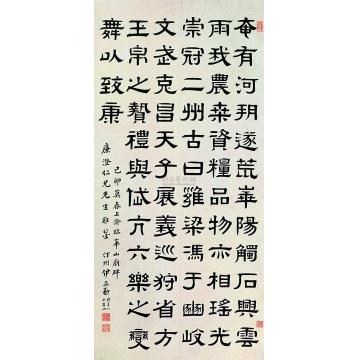 奄有河朔遂荒崋陽觸石興雲
雨我農桑資糧品物亦相瑤光
崇冠二州古曰雍梁馮于豳岐
文武克昌天子展義巡狩省方
玉帛之贄禮與岱亢六樂之變
舞以致康
廉澄仁兄先生雅鑒
己卯莫春上澣臨華山廟碑
汀州伊立勳